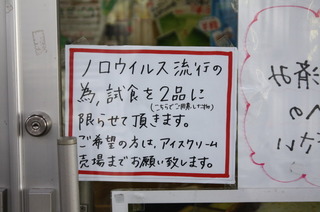 ノロウイルス流行の
為、試食を2品に
(こちらでご用意した物)
限らせて頂きます。
ご希望の方は、アイスクリーム
売場までお願い致します。
済み